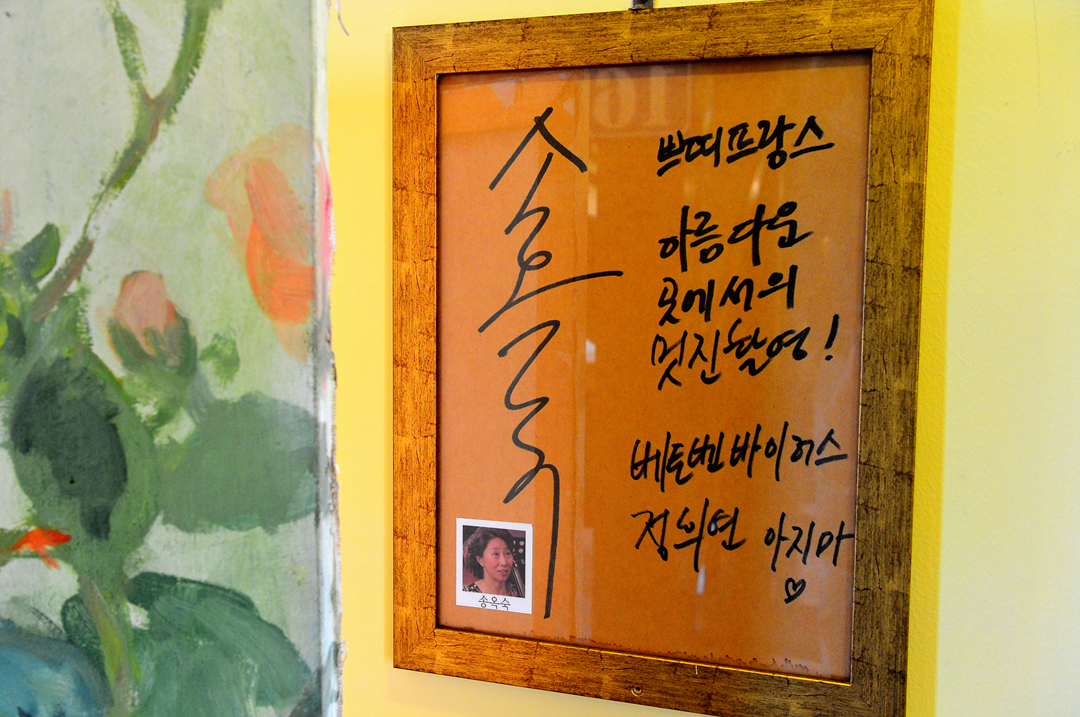 송옥숙
쁘띠프랑스
아름다운
곳에서의
멋진촬영!
베토벤바이러스
정희연 아지마
♡
송옥숙